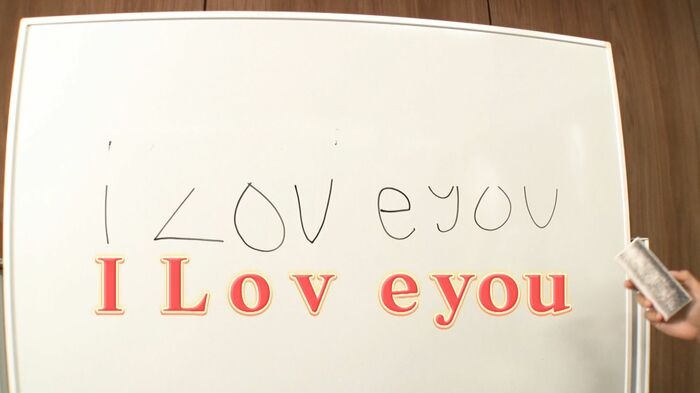 i Lov eyou
I Lov eyou